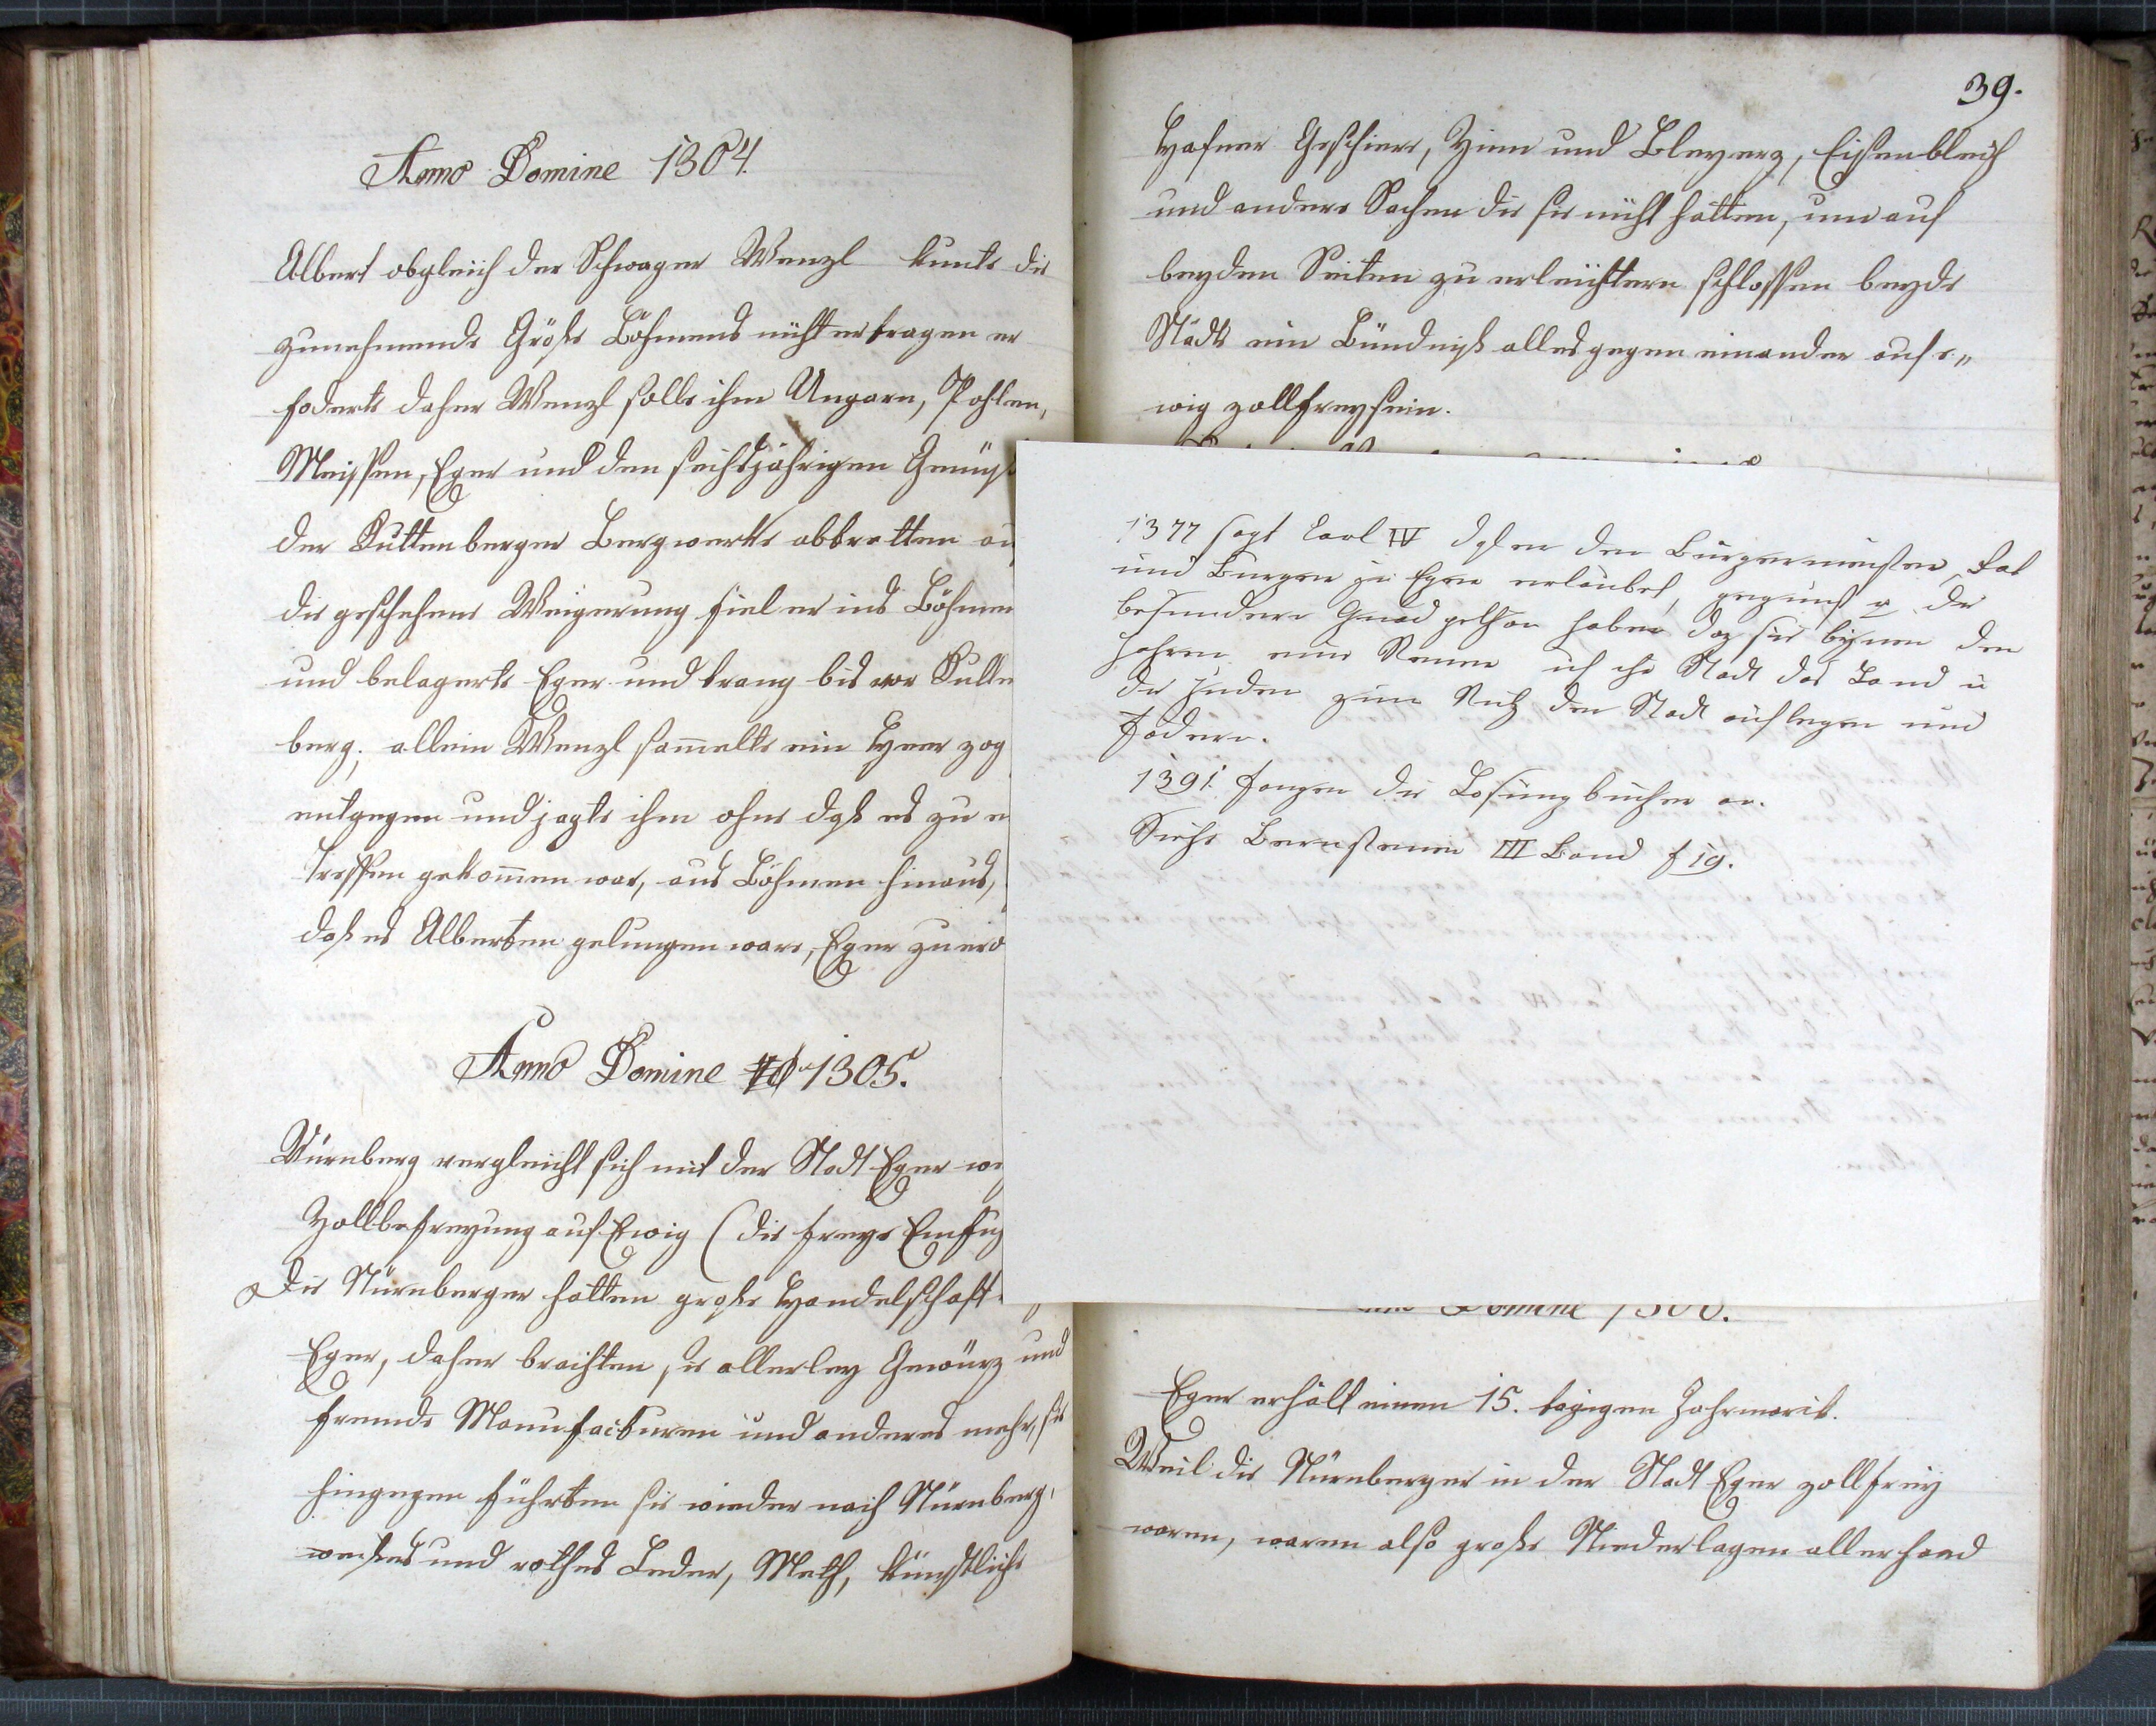 Anno Domine 1304.
Albert obgleich der Schwager Wenzl kunte die
zunehmende Größe Böhmens nicht ertragen er
foderte daher Wenzl solle ihm Ungarn, Pohlen,
Meissen, Eger und den sechsjährigen Genuß
der Kuttenberger Bergwerke abtretten
die geschehene Weigerung fiel er ins Böhmen
und belagerte Eger und trang bis vor Kutten
berg; allein Wenzl sam̅elte ein Heer zog
entgegen und jagte ihm ohne daß es zu
treffen gekom̅en war, aus Böhmen hinaus,
daß es Alberten gelungen ware, Eger zu
Anno Domine 1305.
Nürnberg vergleicht sich mit der Stadt Eger
Zollbefreyung auf Ewig (die freye
Die Nürnberger hatten große Handelschaft
Eger, daher brachten sie allerley Gewürz und
fremde Manufacturen und anderes mehr, sie
hingegen führten sie wieder nach Nürnberg,
weißes und rothes Leder, Meth, künstliche
39.
Hafner Geschierr, Zinn und Bleyerz, Eisenblech
und andere Sachen die sie nicht hatten, um auf
beyden Seiten zu erleichtern schlossen beyde
Städte ein Bündniß alles gegen einander auf e„
wig zollfrey sein.
1377 sagt Carl IV daß er den Bürgermeister, Rat
und Burger zu Eger erlaubet, gegunst u die
besundere Gnad gethan haben daz sie bynnen den
Jahren eine Steuer uf ihr Stadt das Land u
die Juden zum Nuz der Stadt auflegen und
fodern.
1391 fangen die Losungbücher an.
Siehe Bernstein III Band f 19.
Domine 1306.
Eger erhält einen 15. tägigen Jahrmarckt.
Weil die Nürnberger in der Stadt Eger zollfrey
waren, waren also große Niederlagen allerhand